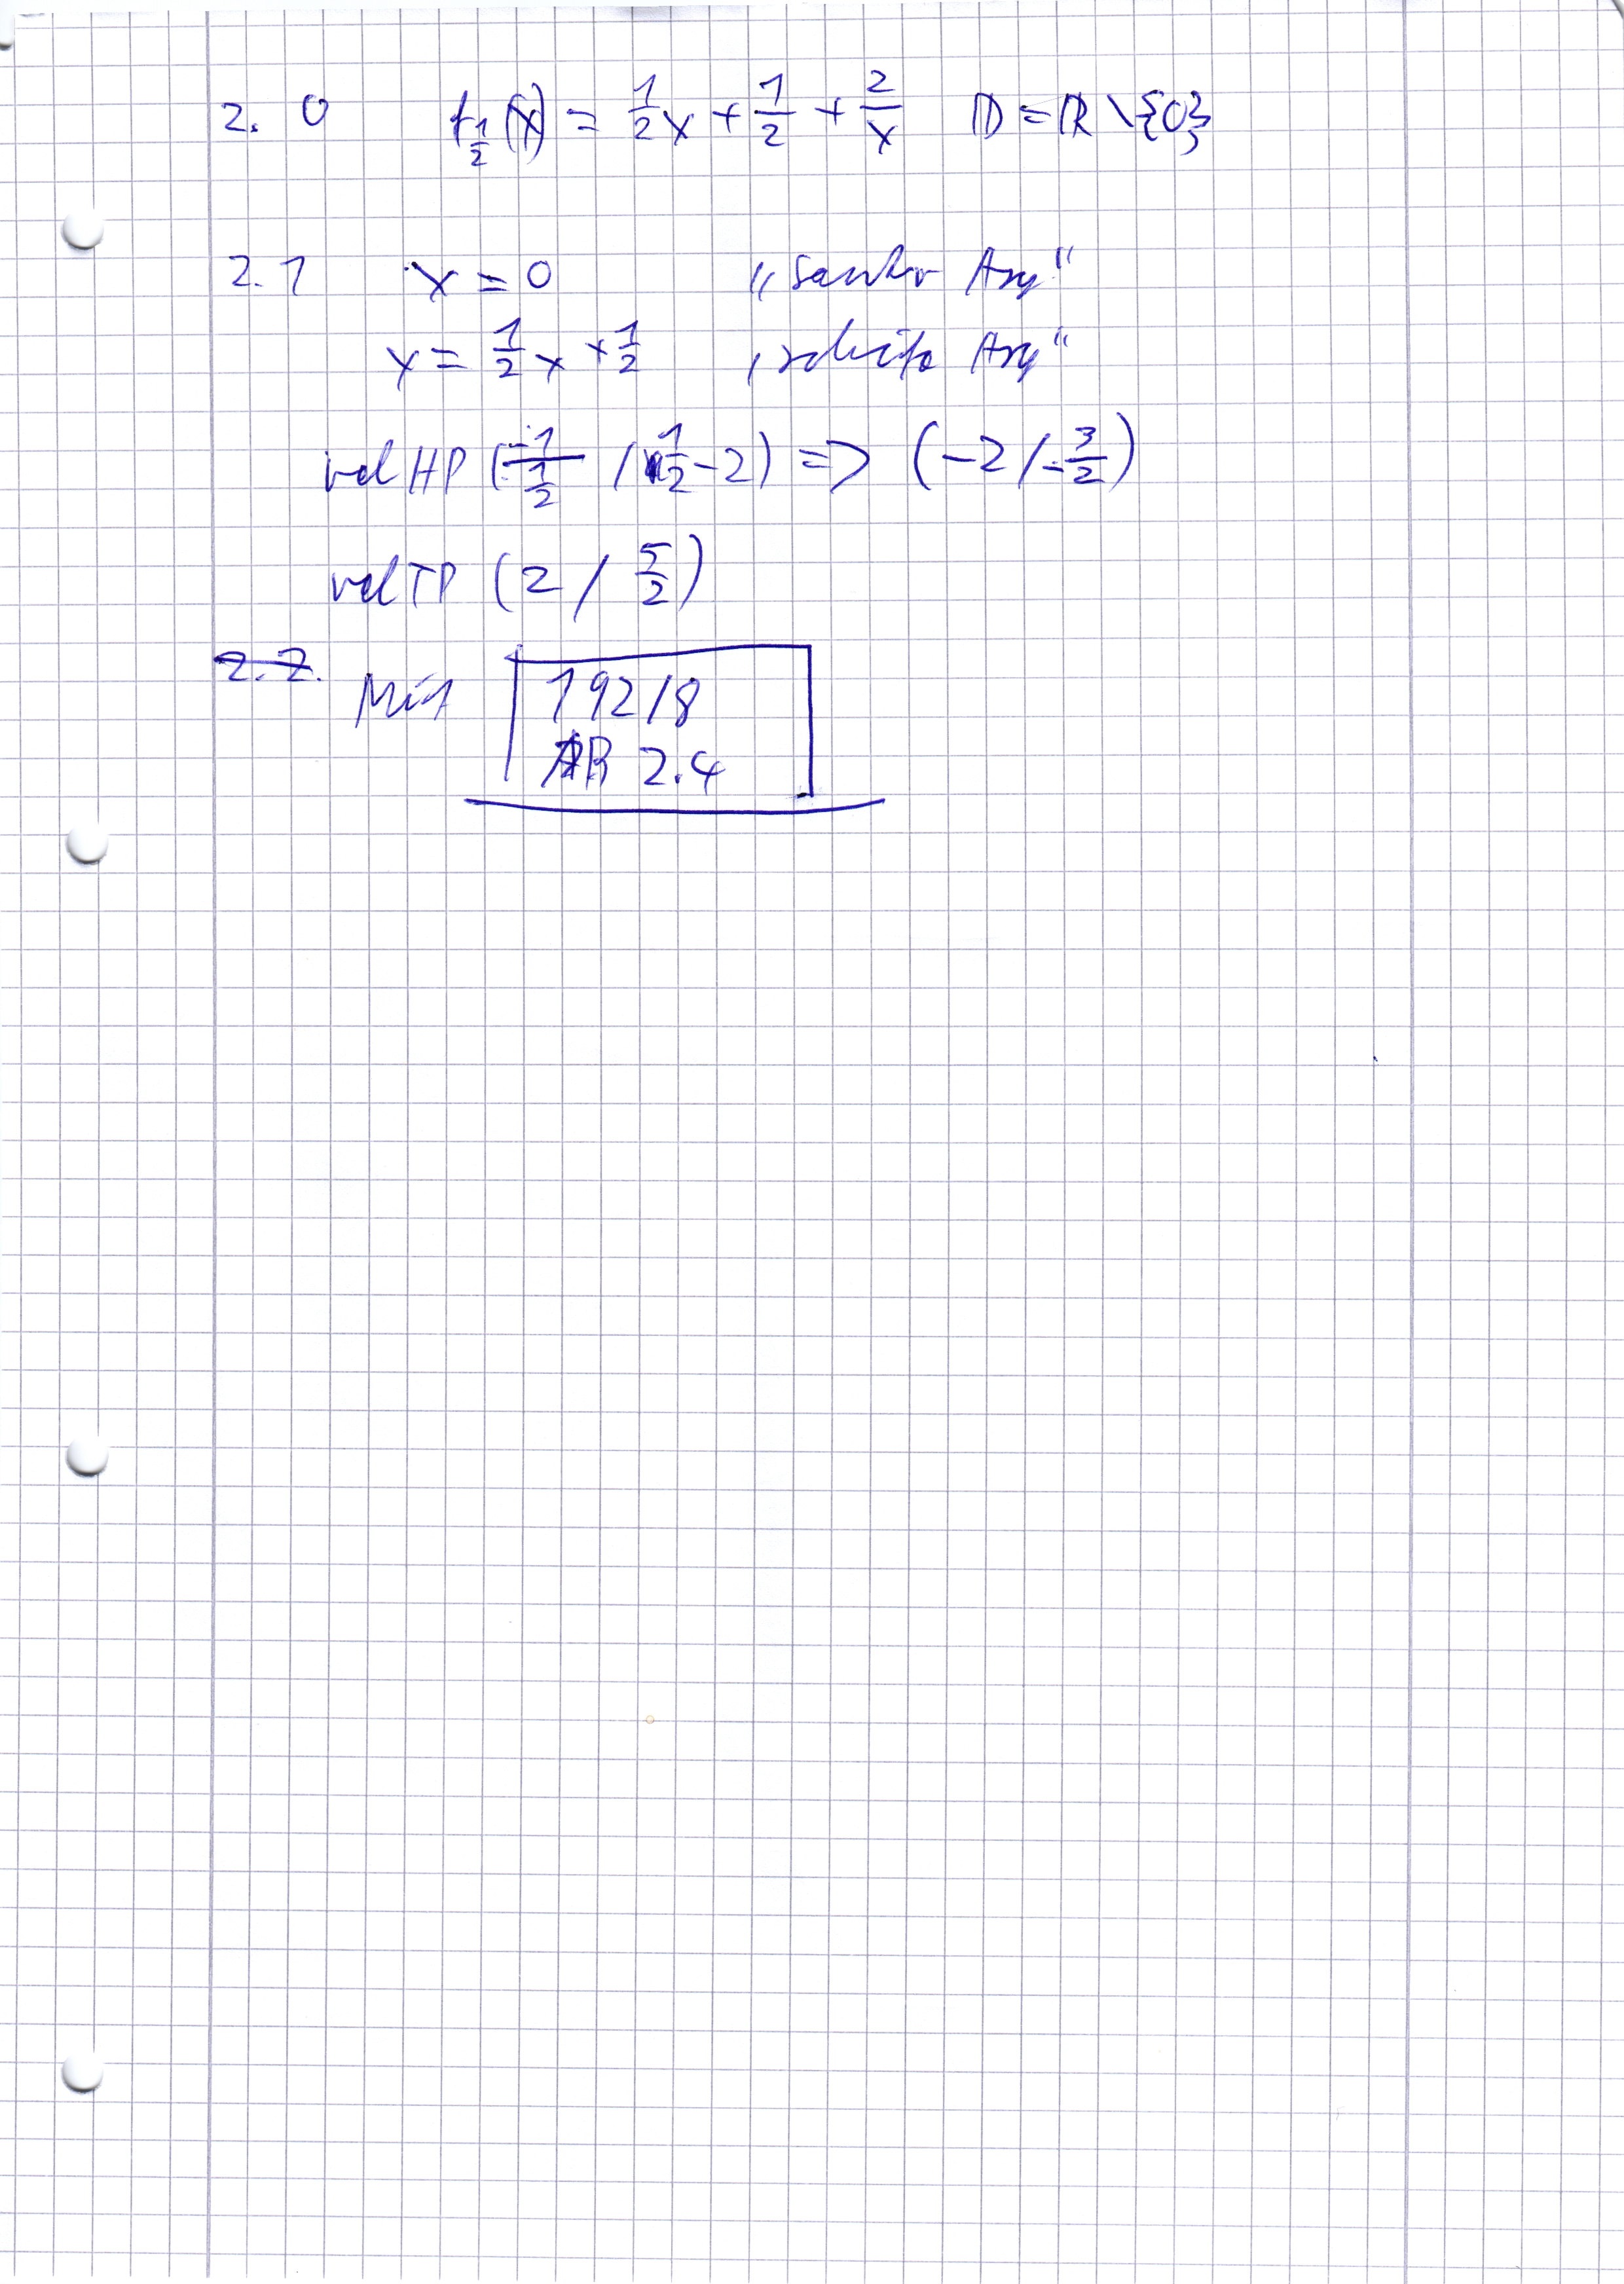 2. 0 f_{1/2}(x) = 1/2 x + 1/2 + 2/x D = ℝ \ {0}
2.1 x = 0 „senkr Asy“
y = 1/2 x + 1/2 „schiefe Asy“
rel HP (-1/(1/2) / 1/2 - 2) => (-2 / -3/2)
rel TP (2 / 5/2)
2.2.
192/8
AB 2.4